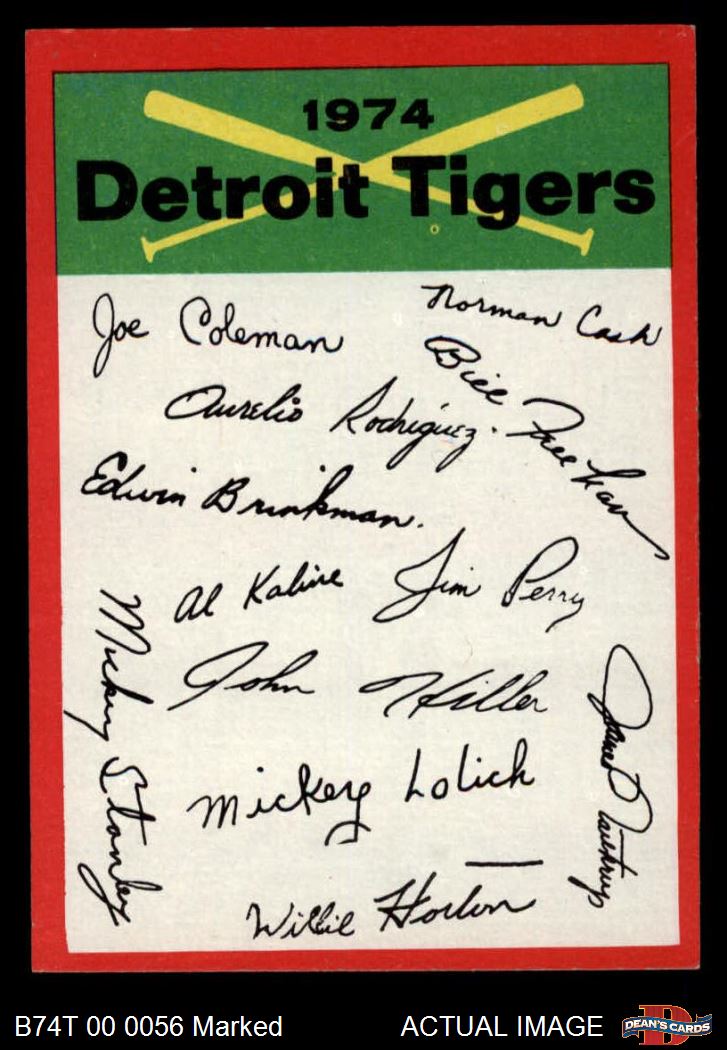 1974
Detroit Tigers
Joe Coleman
Norman Cash
Bill Freehan
Aurelio Rodriguez.
Edwin Brinkman.
Al Kaline
Jim Perry
Mickey Stanley
John Hiller
James Northrup
Mickey Lolich
Willie Horton
B74T 00 0056 Marked
ACTUAL IMAGE
D
DEAN'S CARDS